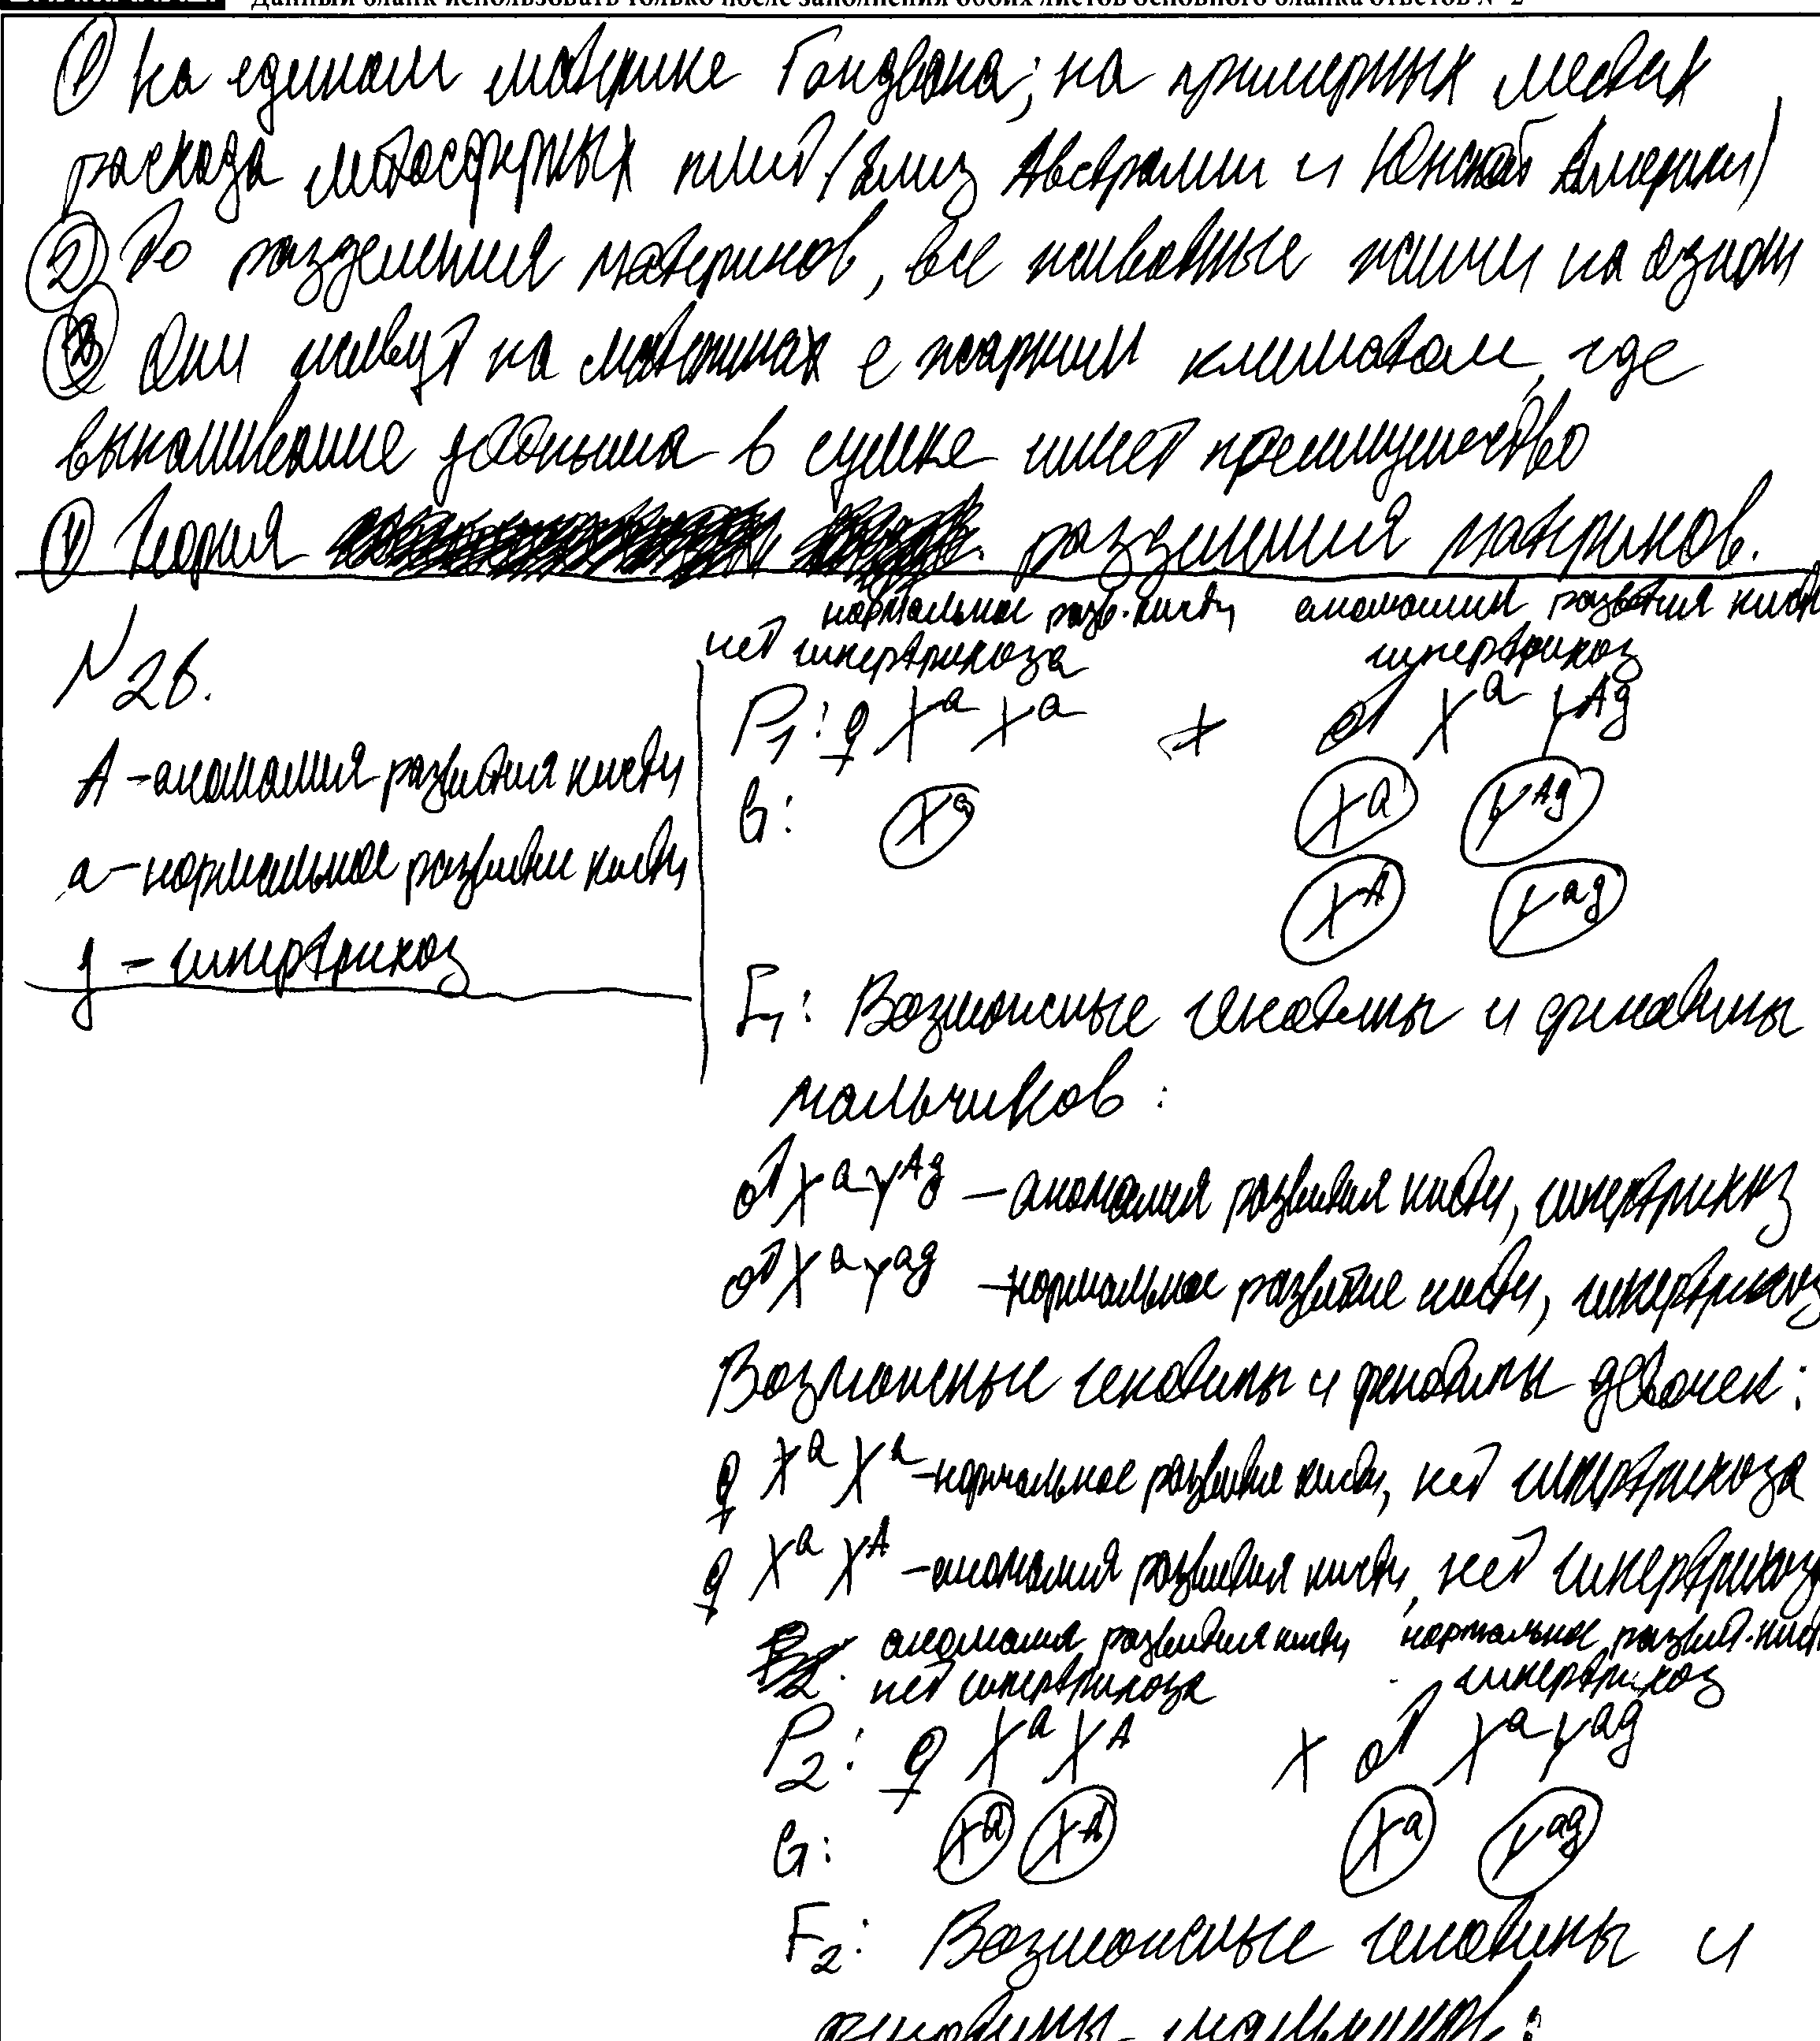 Данный бланк использовать только после заполнения обоих листов основного бланка ответов № 2
① На едином материке Гондвана; на примерных местах
расхода литосферных плит (близ Австралии и Южной Америки)
② До разделения материков, все животные жили на одном
③ Они живут на материках с жарким климатом, где
вынашивание детёныша в сумке имеет преимущество
④ Теория разделения материков.
№ 28.
А – аномалия развития кисти
а – нормальное развитие кисти
g – гипертрихоз
нормальное разв. кисти аномалия развития кисти
нет гипертрихоза гипертрихоз
P₁: ♀ Xᵃ Xᵃ × ♂ Xᵃ Yᴬᵍ
G: Xᵃ Xᵃ Yᴬᵍ
Xᴬ Yᵃᵍ
F₁: Возможные генотипы и фенотипы
мальчиков:
♂ XᵃYᴬᵍ – аномалия развития кисти, гипертрихоз
♂ XᵃYᵃᵍ – нормальное развитие кисти, гипертрихоз
Возможные генотипы и фенотипы девочек:
♀ Xᵃ Xᵃ – нормальное развитие кисти, нет гипертрихоза
♀ Xᵃ Xᴬ – аномалия развития кисти, нет гипертрихоза
аномалия развития кисти нормальное развит. кисти
нет гипертрихоза гипертрихоз
P₂: ♀ Xᵃ Xᴬ × ♂ Xᵃ Yᵃᵍ
G: Xᵃ Xᴬ Xᵃ Yᵃᵍ
F₂: Возможные генотипы и
фенотипы мальчиков: